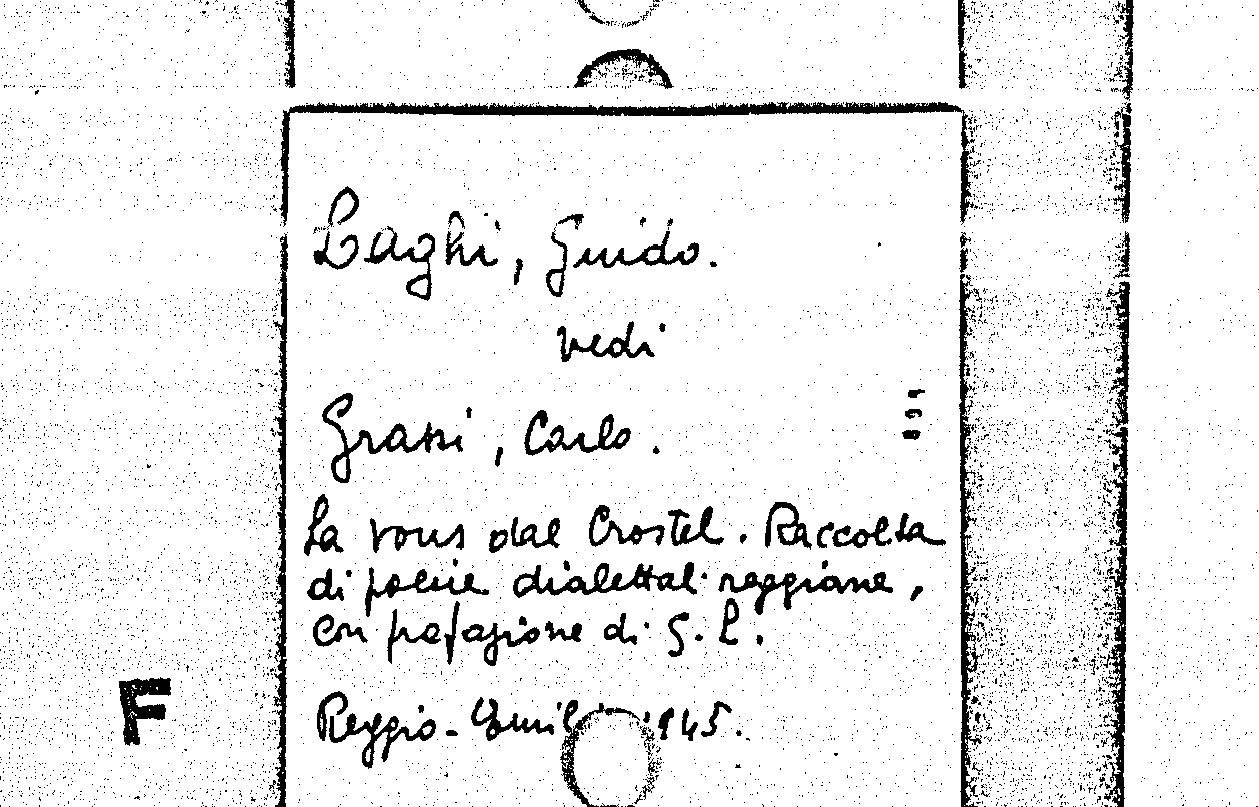 Laghi, Guido.
vedi
Grassi, Carlo.
La vous dal Crostel. Raccolta
di poesie dialettali reggiane,
con prefazione di G. L.
Reggio-Emilia 1945.
F